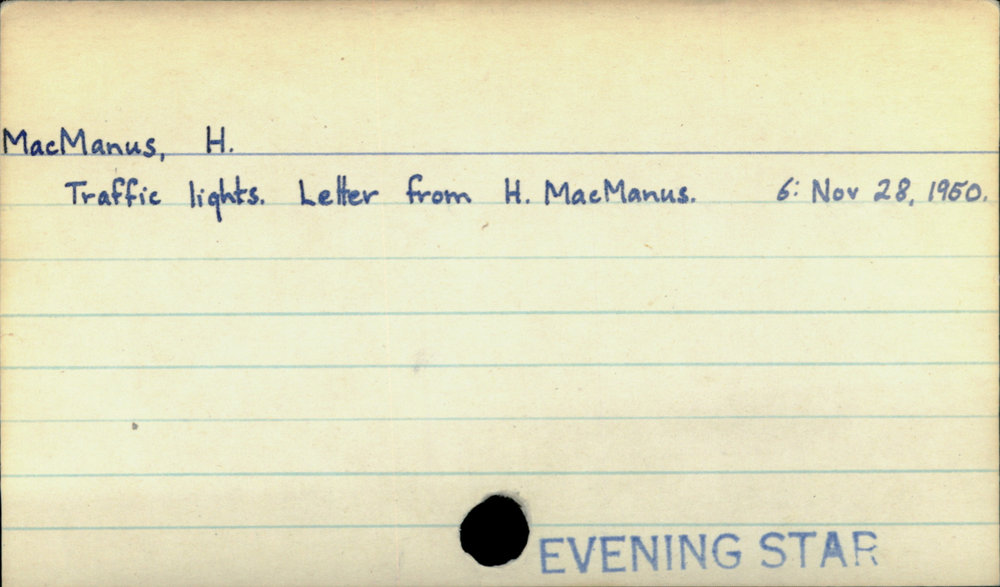 MacManus, H.
Traffic lights. Letter from H. MacManus. 6: Nov 28, 1950.
EVENING STAR